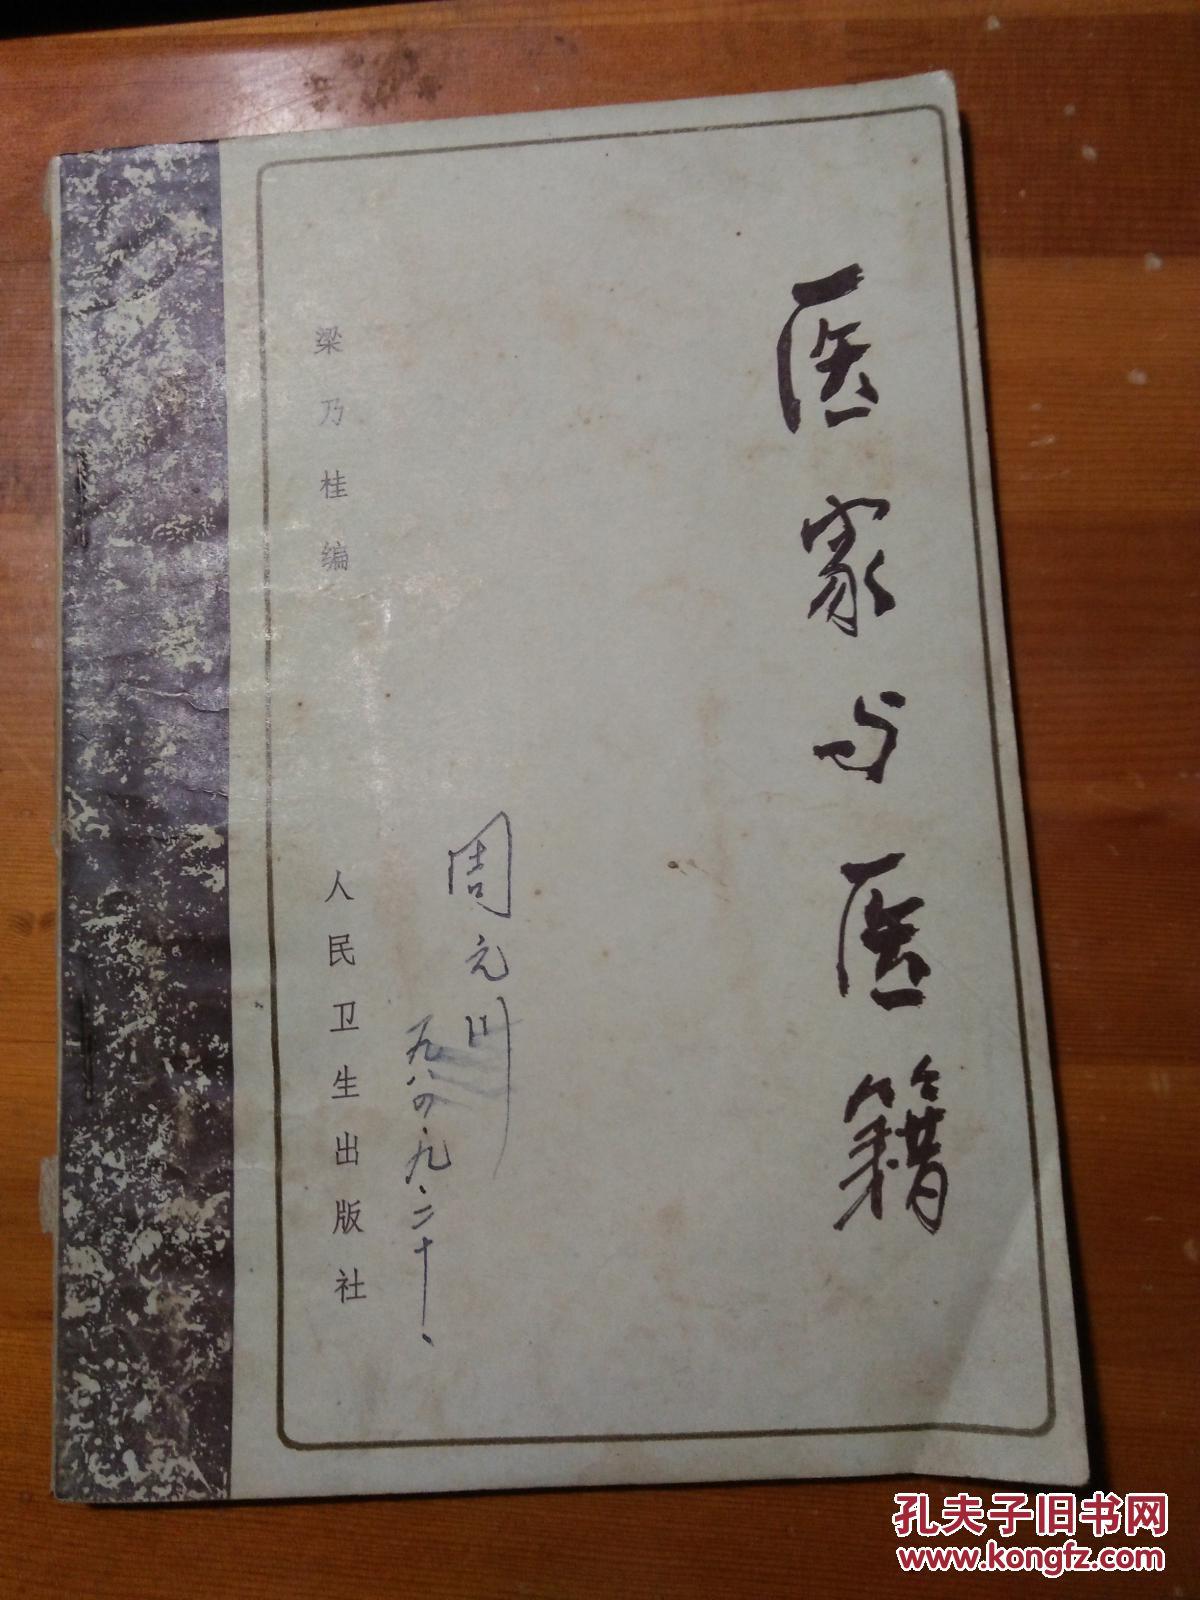 医家与医籍
梁乃桂编
人民卫生出版社
周元川
九八四·九·二十·
孔夫子旧书网
www.kongfz.com